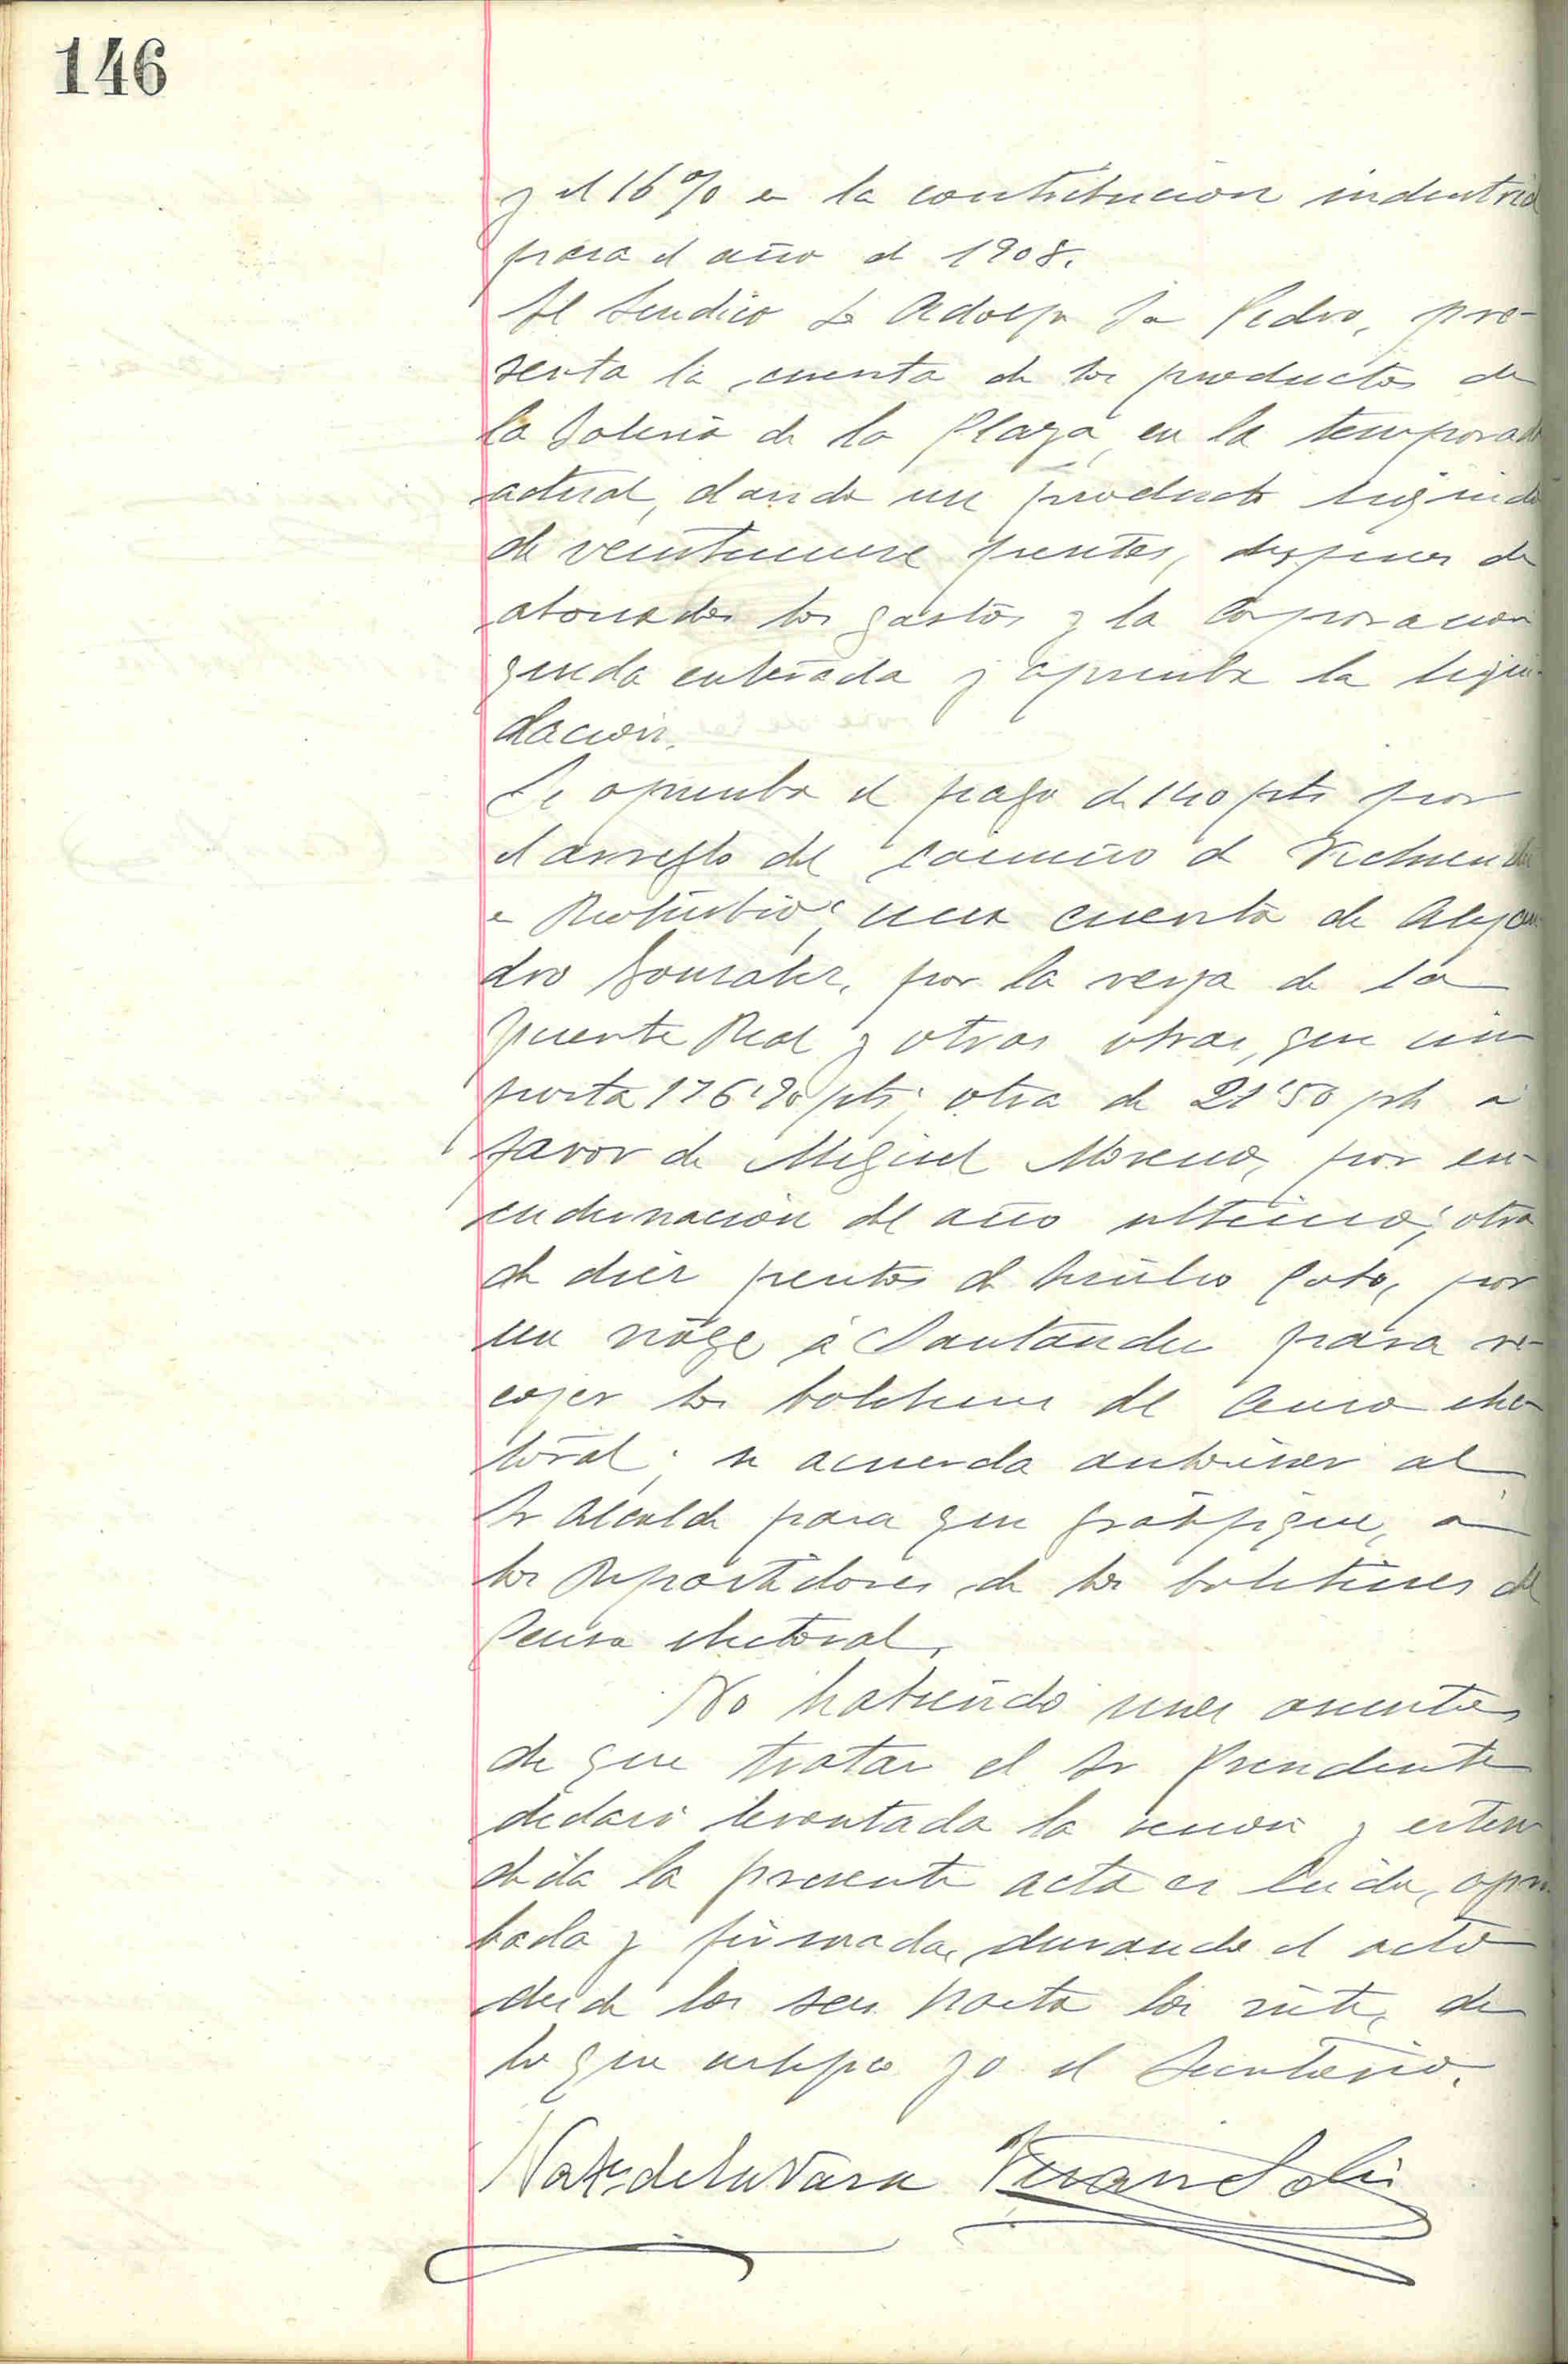 146
y el 16 % en la contribucion industrial
para el año de 1908.
El Sindico D. Adolfo Pedro, pre-
senta la cuenta de los productos de
la Galeria de la Plaza, en la temporada
actual, dando un producto liquido
de veintinueve pesetas, despues de
abonados los gastos y la Corporacion
queda enterada y aprueba la liqui-
dacion.
Se aprueba el pago de 140 pts por
el arreglo del camino de
a una cuenta de Alejan-
dro Gonzalez, por la verja de la
Fuente Real y otras obras, que im
porta 176'90 pts; otra de 21'50 pts a
favor de Miguel Moreno, por en-
cudernacion del año ultimo; otra
de diez pesetas de Coto, por
un viage á Santander para re-
cojer los boletines del Censo elec-
toral; se acuerda autorizar al
Sr Alcalde para que gratifique, a
los repartidores de los boletines del
Censo electoral.
No habiendo mas asuntos
de que tratar el Sr Presidente
declaró levantada la sesion y esten
dida la presente acta es leida, apro
bada y firmada, durando el acto
desde las seis hasta las siete, de
lo que certifico yo el Secretario.
de la Vara